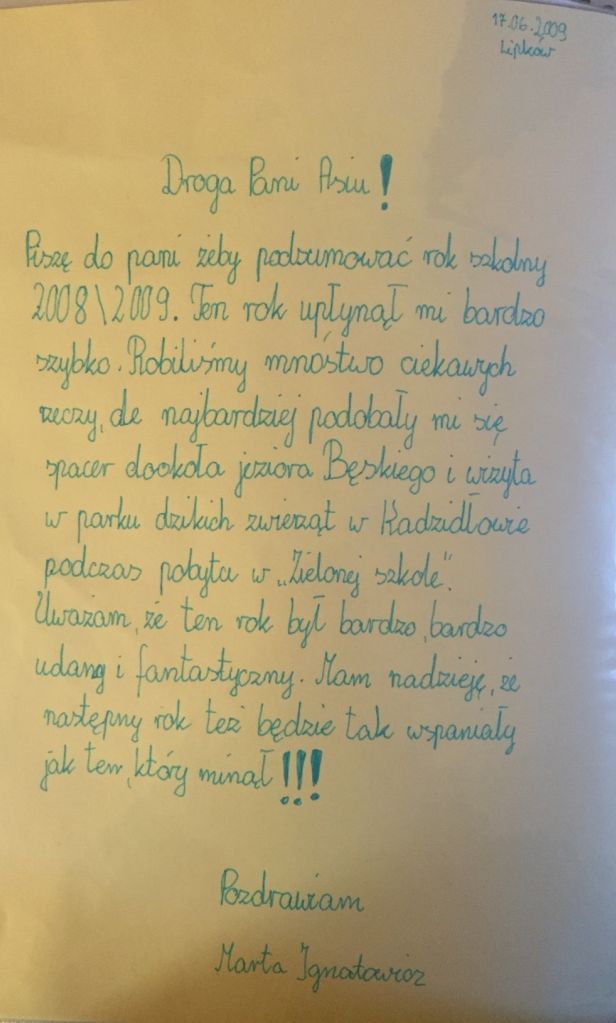 17.06.2009
Lipków
Droga Pani Asiu!
Piszę do pani żeby podsumować rok szkolny
2008\2009. Ten rok upłynął mi bardzo
szybko. Robiliśmy mnóstwo ciekawych
rzeczy, ale najbardziej podobały mi się
spacer dookoła jeziora Bęskiego i wizyta
w parku dzikich zwierząt w Kadzidłowie
podczas pobytu w „Zielonej szkole".
Uważam, że ten rok był bardzo, bardzo
udany i fantastyczny. Mam nadzieję, że
następny rok też będzie tak wspaniały
jak ten, który minął!!!
Pozdrawiam
Marta Ignatowicz